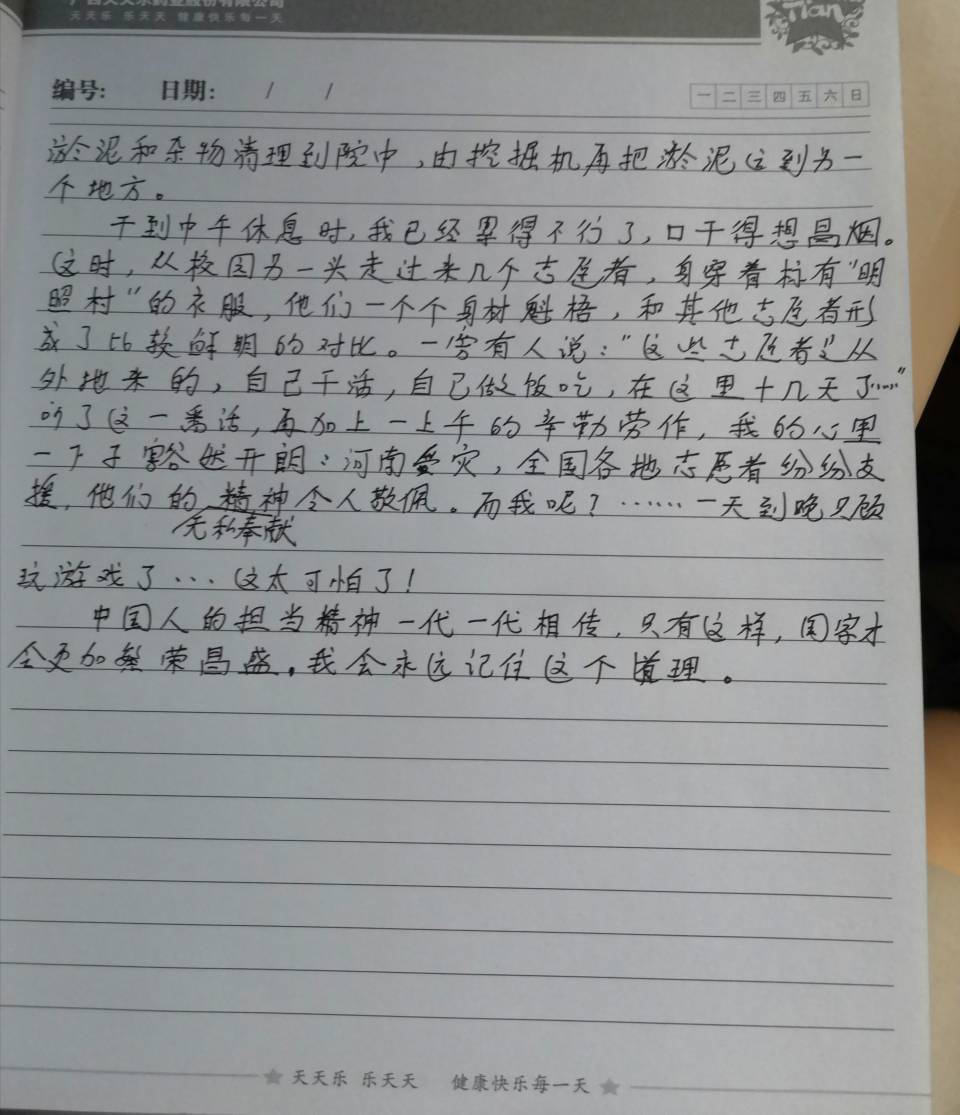 广西天天乐药业股份有限公司
天天乐 乐天天 健康快乐每一天
Tian
编号: 日期: / /
一 二 三 四 五 六 日
淤泥和杂物清理到院中，由挖掘机再把淤泥运到另一
个地方。
干到中午休息时，我已经累得不行了，口干得想冒烟。
这时，从校园另一头走过来几个志愿者，身穿着标有"明
照村"的衣服，他们一个个身材魁梧，和其他志愿者形
成了比较鲜明的对比。一旁有人说："这些志愿者是从
外地来的，自己干活，自己做饭吃，在这里十几天了……"
听了这一番话，再加上一上午的辛勤劳作，我的心里
一下子豁然开朗：河南受灾，全国各地志愿者纷纷支
援，他们的精神令人敬佩。而我呢？……一天到晚只顾
无私奉献
玩游戏了…这太可怕了！
中国人的担当精神一代一代相传，只有这样，国家才
会更加繁荣昌盛。我会永远记住这个道理。
天天乐 乐天天 健康快乐每一天